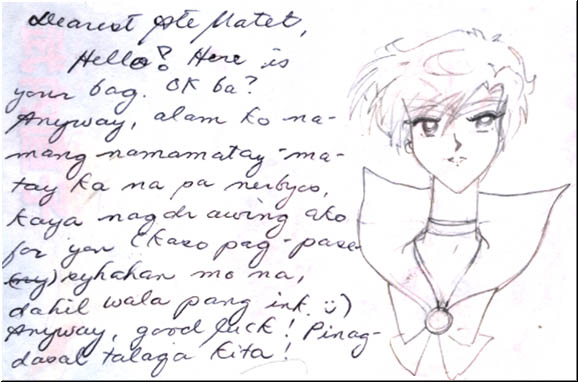 Dearest Ate Matet,
Hello! Here is
your bag. OK ba?
Anyway, alam ko na-
mang namamatay-ma-
tay ka na pa nerbyos,
kaya nagdrawing ako
for you (kaso pag-pase
mo na,
dahil wala pang ink. :)
Anyway, good luck! Pinag-
dasal talaga kita!